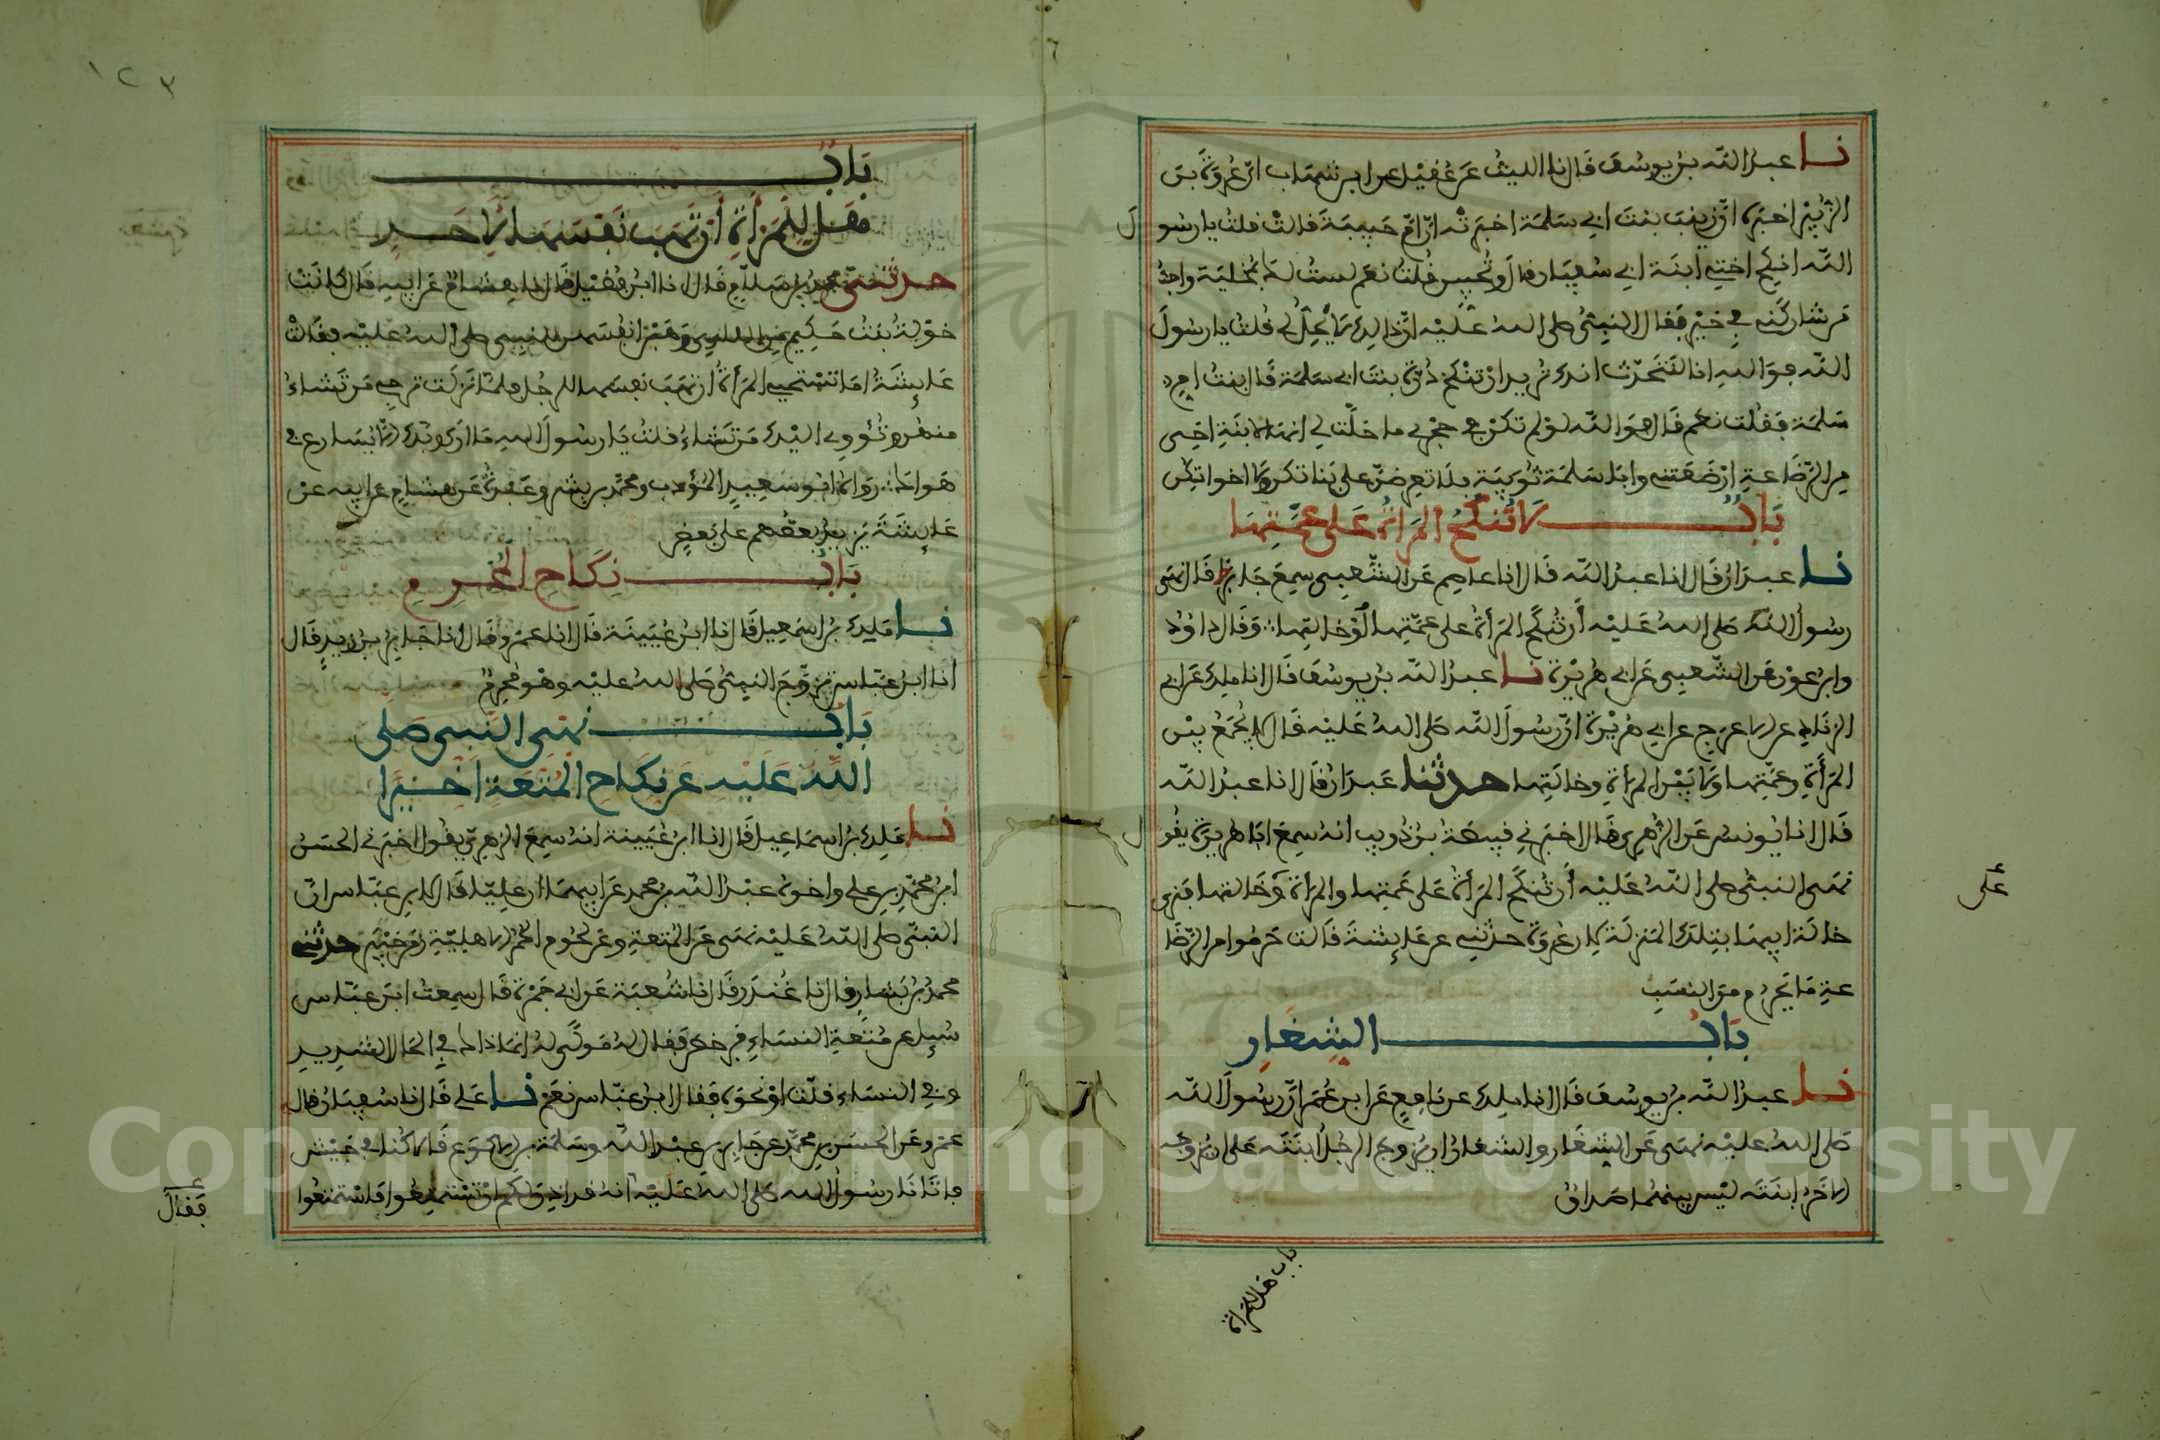 نا عبد الله بن يوسف قال نا الليث عن عقيل عن ابن شهاب ان عروة بن
الزبير اخبره ان زينب بنت ابي سلمة اخبرته ان ام حبيبة قالت قلت يا رسو
ل
الله انكح اختي ابنة ابي سفيان قال وتحبين قلت نعم لست لك بمخلية واحب
من شاركني في خير فقال النبي صلى الله عليه ان ذالك لا يحل لي قلت يا رسول
الله فوالله انا لنتحدث انك تريد ان تنكح درة بنت ابي سلمة قال بنت ام
سلمة فقلت نعم قال فوالله لو لم تكن في حجري ما حلت لي انها لابنة اخي
من الرضاعة ارضعتني وابا سلمة ثويبة فلا تعرضن علي بناتكن ولا اخواتكن
باب لا تنكح المراة على عمتها
نا عبدان قال انا عبد الله قال انا عاصم عن الشعبي سمع جابرا قال نهى
رسول الله صلى الله عليه أن تنكح المرأة على عمتها أو خالتها وقال داوود
وابن عون عن الشعبي عن ابي هريرة نا عبد الله بن يوسف قال انا ملك عن ابي
الزناد عن الاعرج عن ابي هريرة ان رسول الله صلى الله عليه قال لا يجمع بين
المرأة وعمتها ولا بين المرأة وخالتها حدثنا عبدان قال انا عبد الله
قال انا يونس عن الزهري قال اخبرني قبيصة بن ذويب انه سمع ابا هريرة يقو
ل
نهى النبي صلى الله عليه أن تنكح المرأة على عمتها والمراة وخالتها فنرى
على
خالة ابيها بتلك المنزلة لان عروة حدثني عن عايشة قالت حرموا من الرضا
عة ما يحرم من النسب
باب الشغار
نا عبد الله بن يوسف قال انا ملك عن نافع عن ابن عمر ان رسول الله
صلى الله عليه نهى عن الشغار والشغار ان يزوج الرجل ابنته على ان يزوجه
الاخر ابنته ليس بينهما صداق
باب هل للمراة
١٢٣
باب
هل للمرأة أن تهب نفسها لاحد
حدثني محمد بن سلام قال نا ابن فضيل قال نا هشام عن ابيه قال كانت
خولة بنت حكيم من اللاءي وهبن انفسهن للنبي صلى الله عليه فقالت
عايشة اما تستحيي المرأة ان تهب نفسها للرجل فلما نزلت ترجي من تشاء
منهن وتؤوي اليك من تشاء قلت يا رسول الله ما ارى ربك الا يسارع في
هواك رواه ابو سعيد المؤدب ومحمد بن بشر وعبدة عن هشام عن ابيه عن
عايشة يزيد بعضهم على بعض
باب نكاح المحرم
نا ملك بن اسمعيل قال نا ابن عيينة قال انا عمرو قال نا جابر بن زيد قال
انا ابن عباس تزوج النبي صلى الله عليه وهو محرم
باب نهى النبي صلى
الله عليه عن نكاح المتعة اخيرا
نا ملك بن اسماعيل قال نا ابن عيينة انه سمع الزهري يقول اخبرني الحسن
ابن محمد بن علي واخوه عبد الله بن محمد عن ابيهما ان عليا قال لابن عباس ان
النبي صلى الله عليه نهى عن المتعة وعن لحوم الحمر الاهلية زمن خيبر حدثني
محمد بن بشار قال نا غندر قال نا شعبة عن ابي جمرة قال سمعت ابن عباس
سيل عن متعة النساء فرخص فقال له مولى له انما ذاك في الحال الشديد
وفي النساء قلة او نحوه فقال ابن عباس نعم نا علي قال نا سفيان قال
عمرو عن الحسن بن محمد عن جابر بن عبد الله وسلمة بن الاكوع قالا كنا في جيش
فاتانا رسول الله صلى الله عليه انه قد اذن لكم ان تستمتعوا فاستمتعوا
فقال